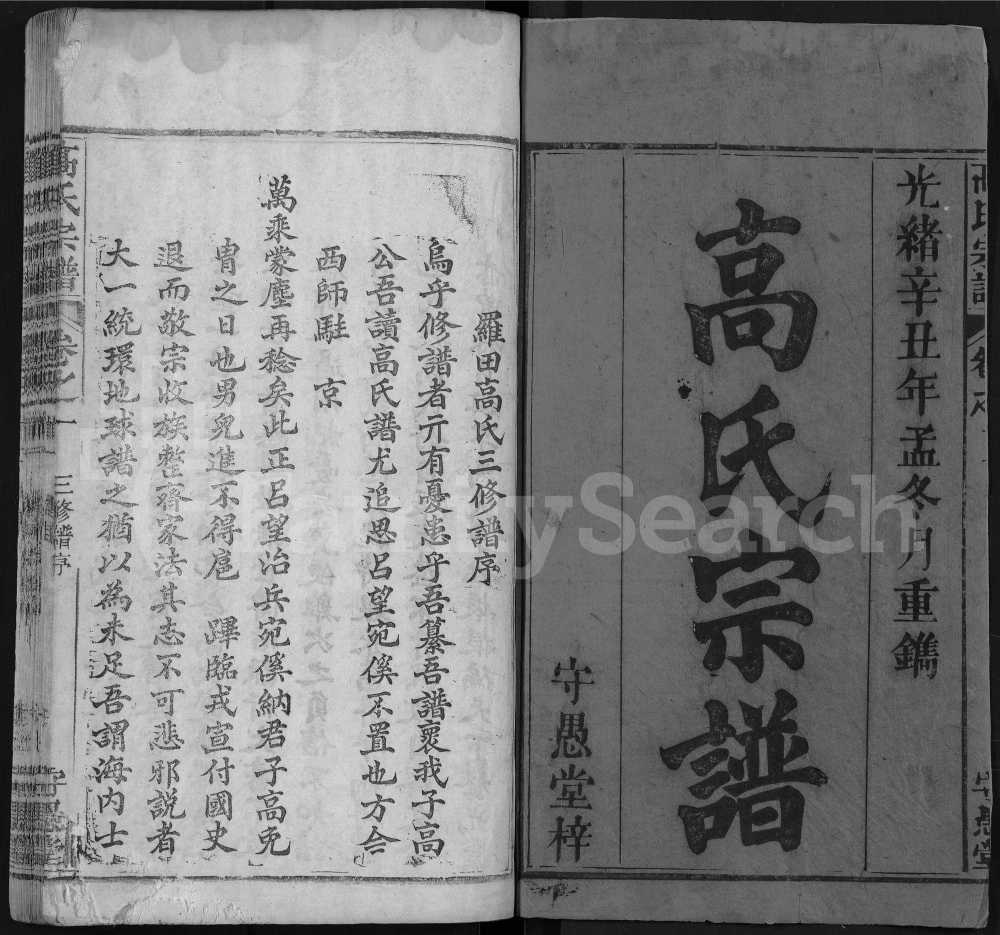 光緒辛丑年孟冬月重鐫
高氏宗譜
守愚堂梓
高氏宗譜
守愚堂
羅田高氏三修譜序
烏乎修譜者亓有憂患乎吾纂吾譜裒我子高
公吾讀高氏譜尤追思呂望宛傒不置也方今
西師駐 京
萬乘蒙塵再稔矣此正呂望治兵宛傒納君子高免
冑之日也男兒進不得扈 蹕臨戎宣付國史
退而敬宗收族整齊家法其志不可悲邪說者
大一統環地球譜之猶以為未足吾謂海內士
高氏宗譜 卷之一 三修譜序
FamilySearch